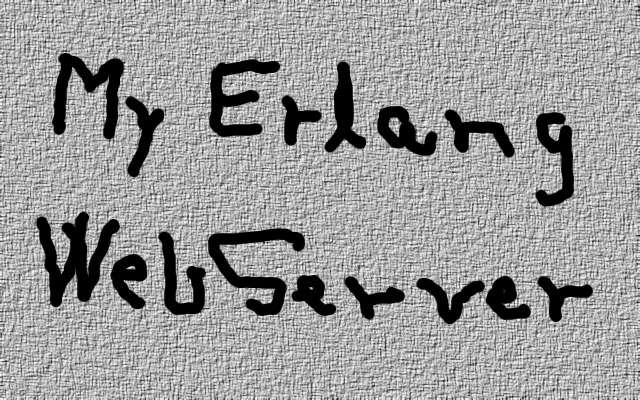 My Erlang
WebServer